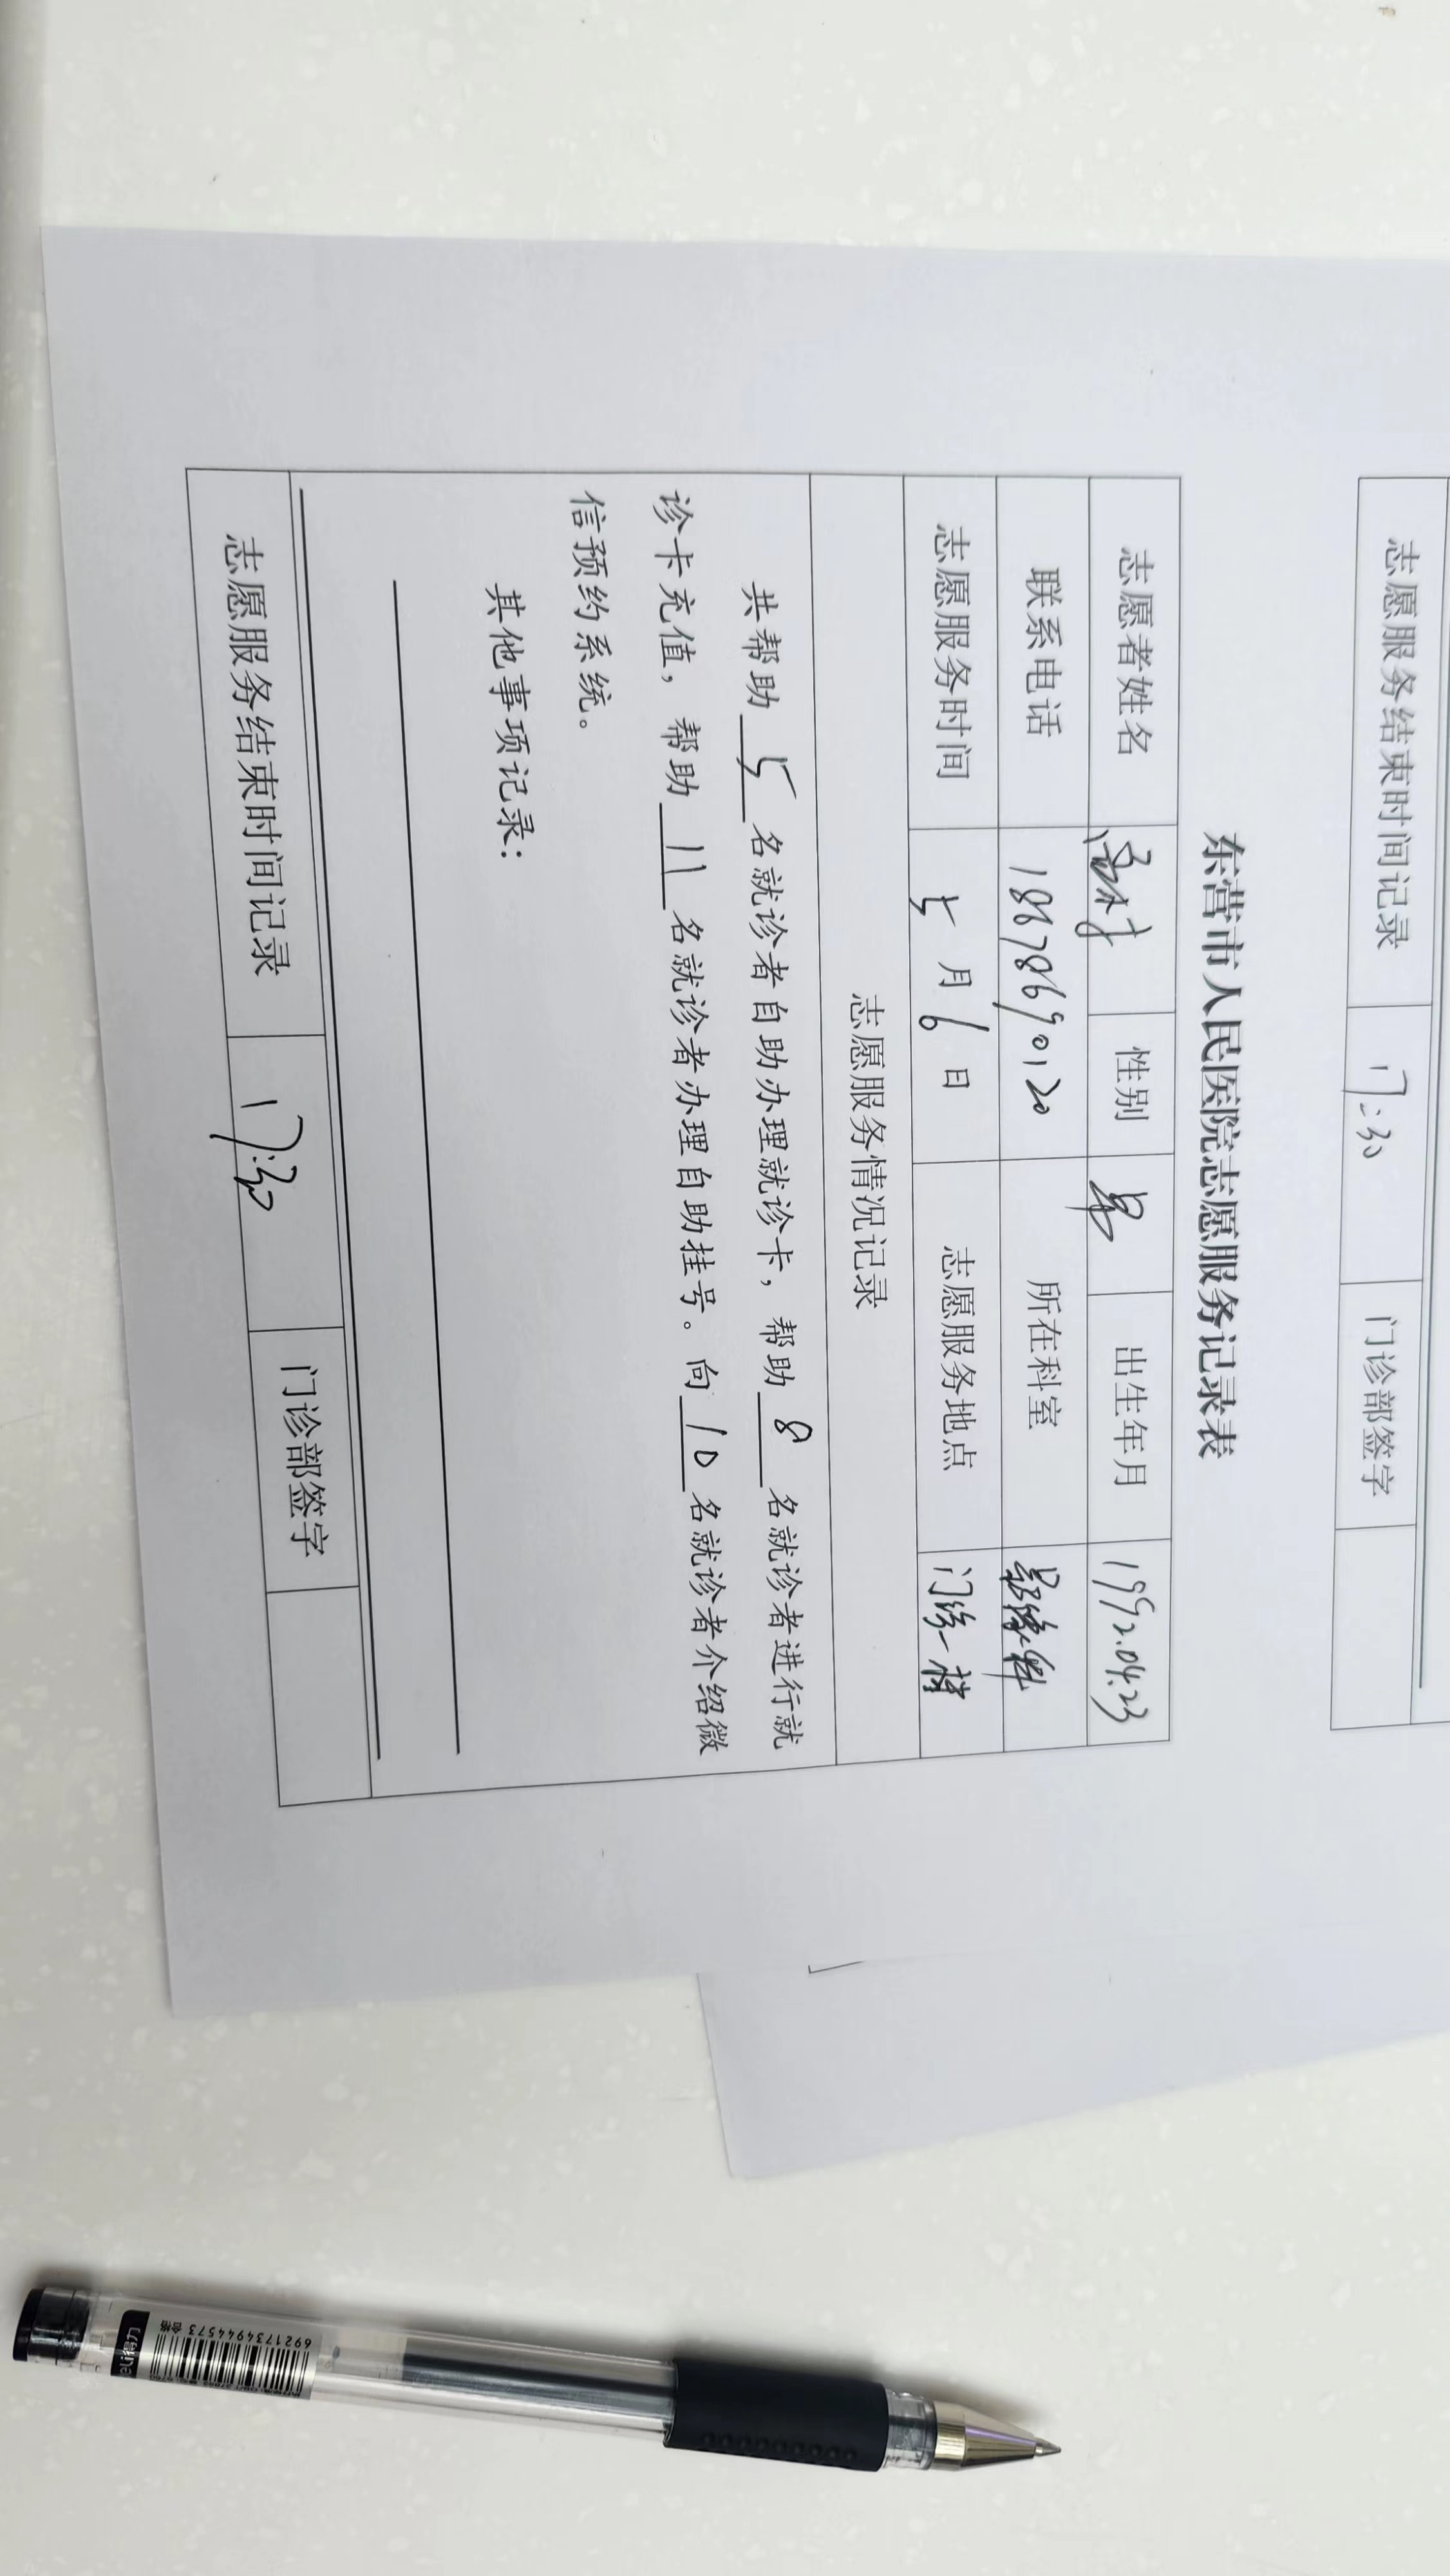 志愿服务结束时间记录 17:30 门诊部签字
东营市人民医院志愿服务记录表
志愿者姓名 性别 男 出生年月 1992.04.23
联系电话 18678690120 所在科室 影像科
志愿服务时间 5月6日 志愿服务地点 门诊一楼
志愿服务情况记录
共帮助 5 名就诊者自助办理就诊卡,帮助 8 名就诊者进行就
诊卡充值,帮助 11 名就诊者办理自助挂号。向 10 名就诊者介绍微
信预约系统。
其他事项记录:
志愿服务结束时间记录 17:30 门诊部签字
deli得力
6921734944573
合格